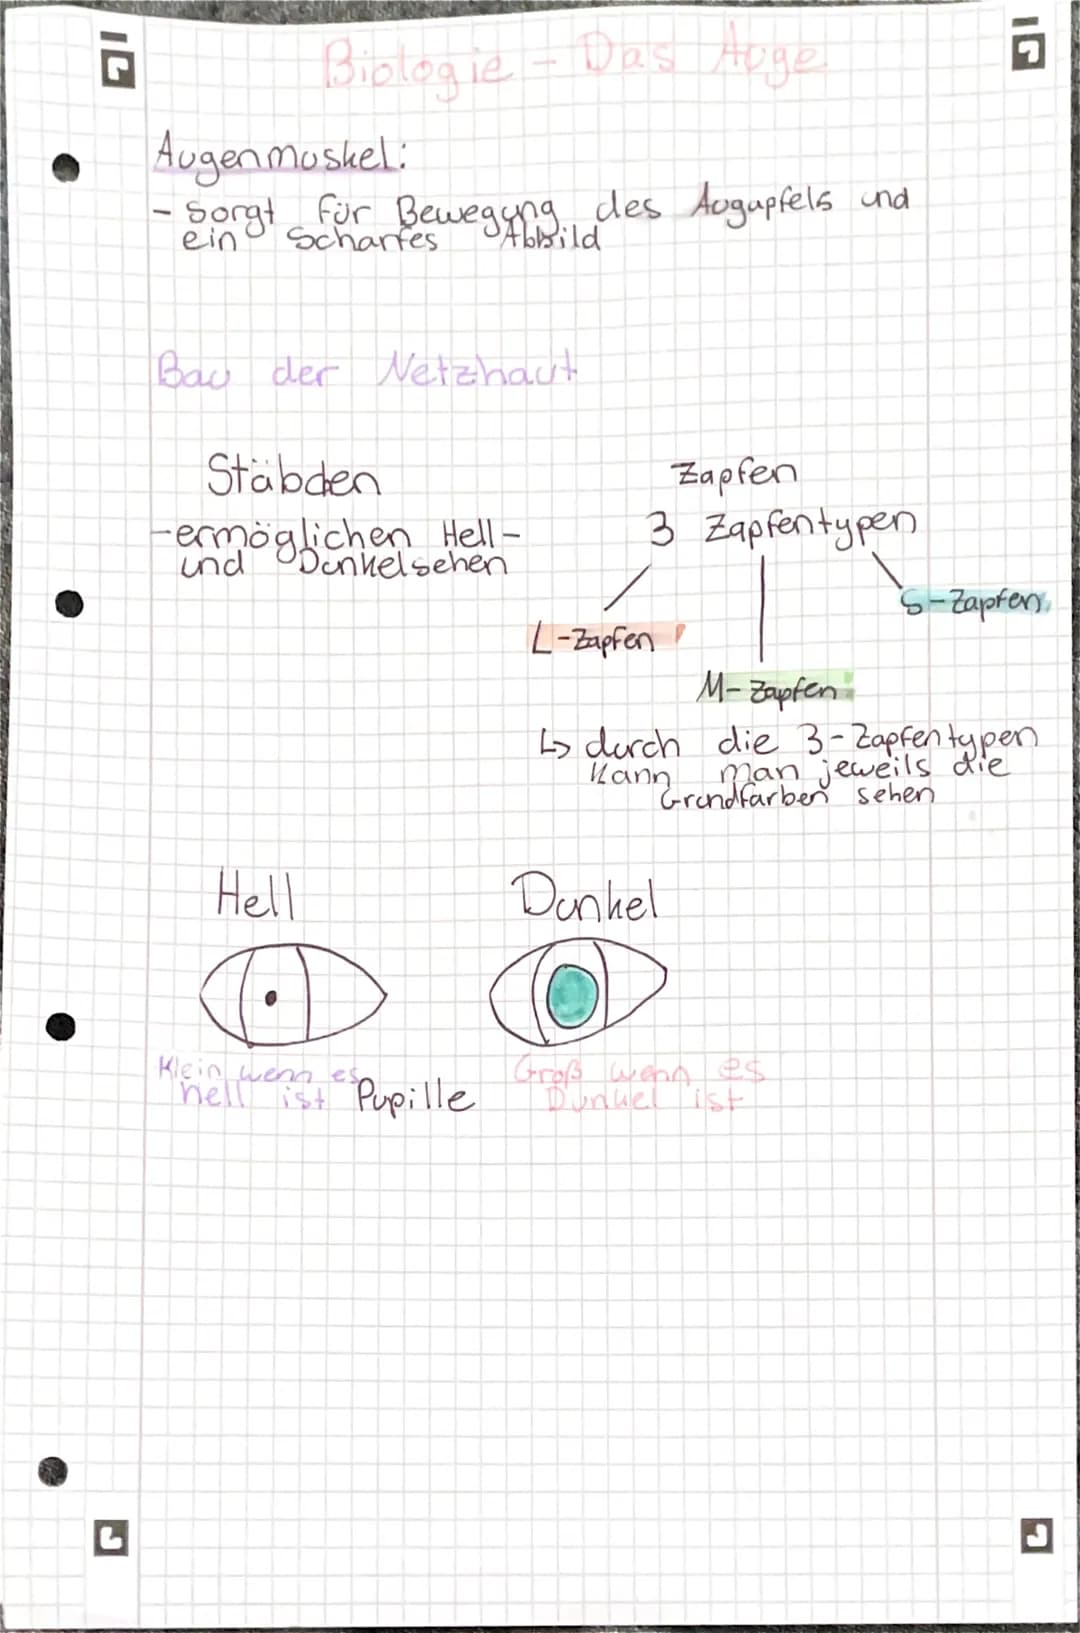 Biologie - Das Auge
Augenmuskel:
- sorgt für Bewegung des Augapfels und
ein Scharfes Abbild
Bau der Netzhaut
Stäbchen
- ermöglichen Hell-
und Dunkelsehen
Zapfen
3 Zapfentypen
S-Zapfen
L-Zapfen
M-Zapfen
↳ durch die 3-Zapfentypen
kann man jeweils die
Grundfarben sehen
Hell
Dunkel
Klein wenn es
hell ist
Pupille
Groß wenn es
Dunkel ist